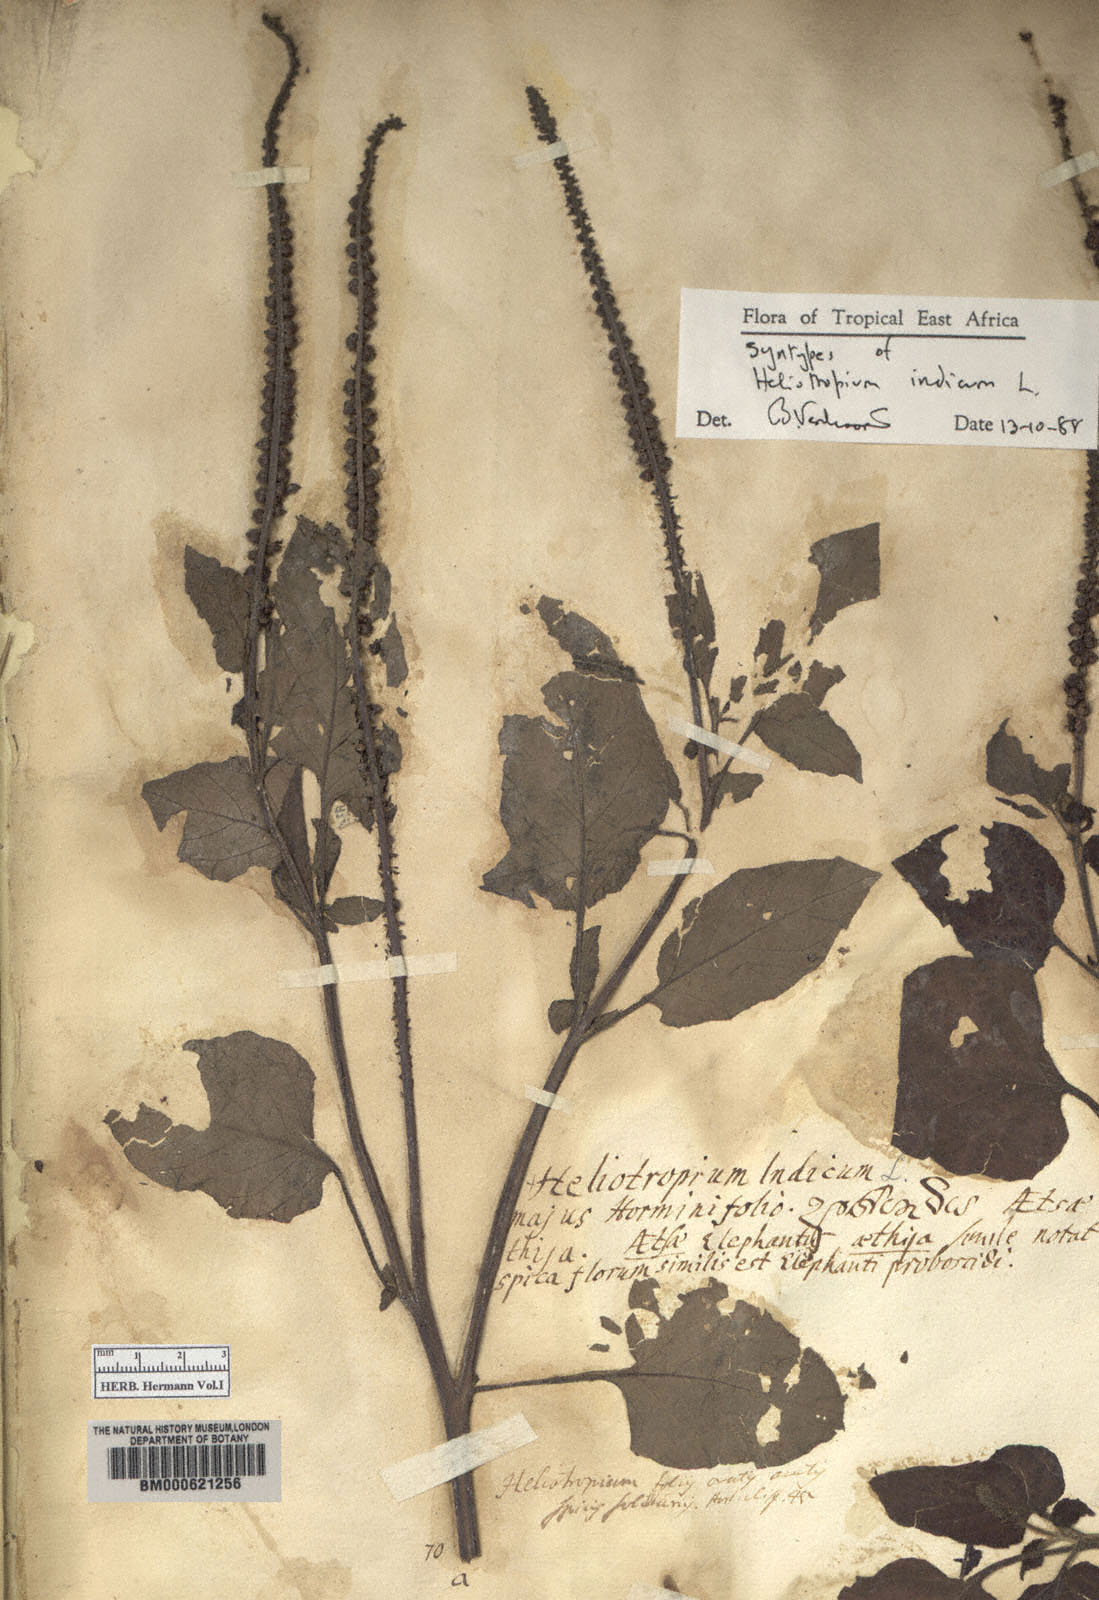 Flora of Tropical East Africa
Syntypes of
Heliotropium indicum L.
Det. B. Verdcourt Date 13-10-88
Heliotropium Indicum L.
majus Horminifolio. Ætsæ
thija. Ætsæ Elephantus æthija simile notat
spica florum similis est Elephanti proboscidi.
mm 1 2 3
HERB. Hermann Vol.I
THE NATURAL HISTORY MUSEUM,LONDON
DEPARTMENT OF BOTANY
BM000621256
Heliotropium
70
a